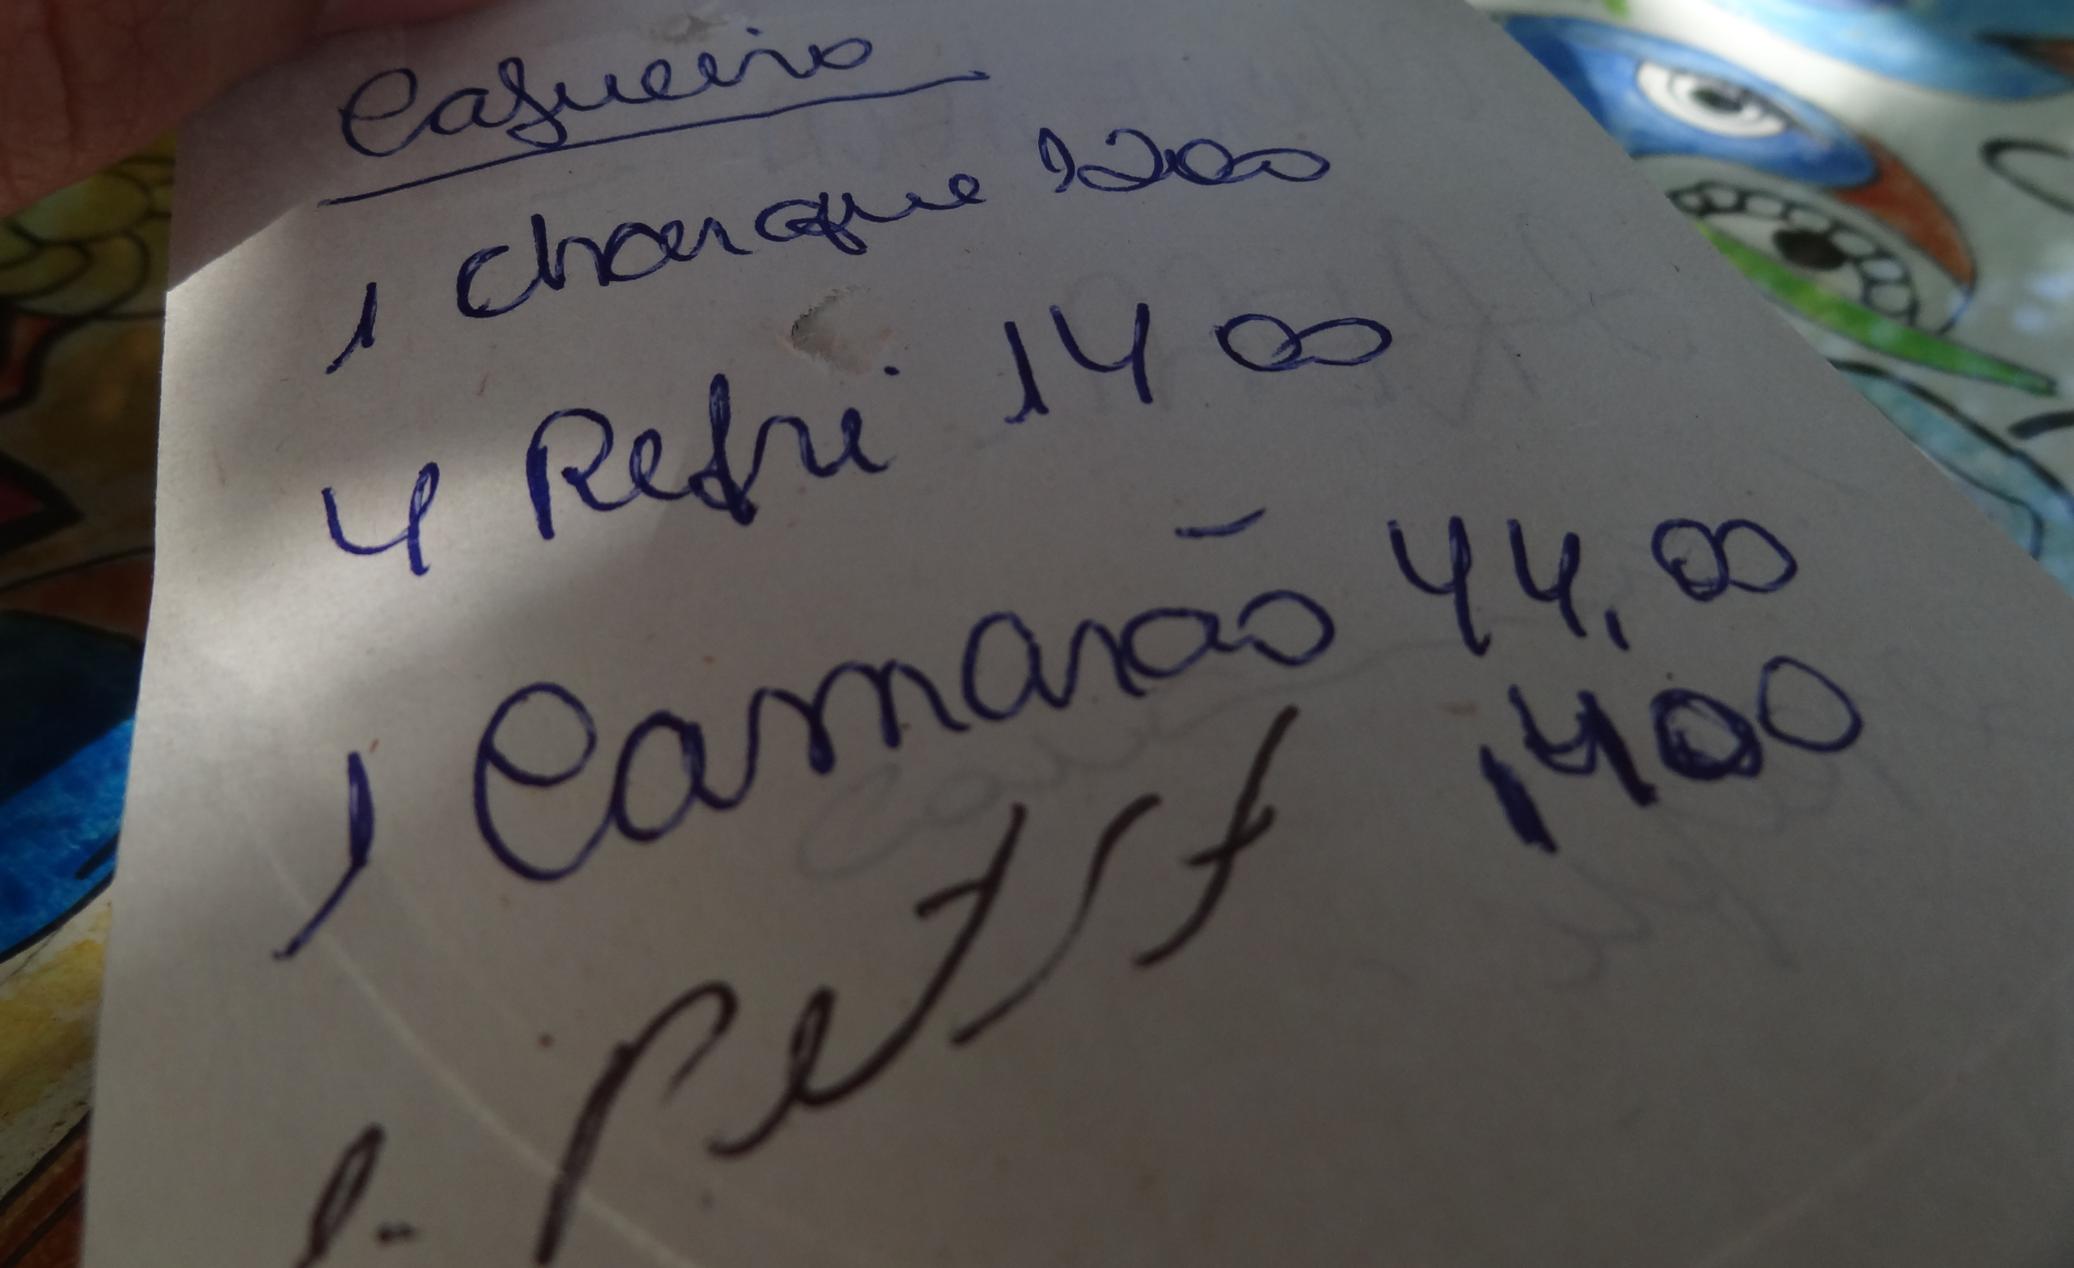 Cajueiro
1 charque 1200
4 Refri 14 00
1 Camarão 44,00
1400
1-